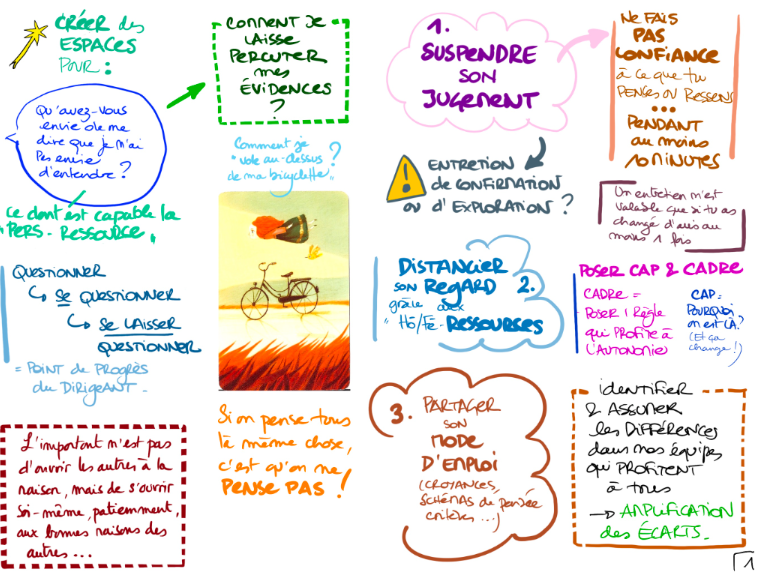 CRÉER des
ESPACES
POUR :
Qu'avez-vous
envie de me
dire que je n'ai
pas envie
d'entendre ?
ce dont est capable la
"PERS - RESSOURCE"
QUESTIONNER
↳ SE QUESTIONNER
↳ SE LAISSER
QUESTIONNER
= POINT DE PROGRÈS
DU DIRIGEANT -
L'important n'est pas
d'ouvrir les autres à la
raison, mais de s'ouvrir
soi-même, patiemment,
aux bonnes raisons des
autres ...
COMMENT JE
LAISSE
PERCUTER
mes
ÉVIDENCES
?
Comment je
"vole au-dessus
de ma bicyclette" ?
Si on pense tous
la même chose,
c'est qu'on ne
PENSE PAS !
1.
SUSPENDRE
SON
JUGEMENT
NE FAIS
PAS
CONFIANCE
à ce que tu
PENSES OU RESSENS
...
PENDANT
au moins
10 MINUTES
ENTRETIEN
de CONFIRMATION
ou d'EXPLORATION ?
Un entretien n'est
valable que si tu as
changé d'avis au
moins 1 fois
DISTANCIER
SON REGARD 2.
grâce aux
"Ho/Fe-RESSOURCES
POSER CAP & CADRE
CADRE =
POSER 1 RÈGLE
qui PROFITE à
L'AUTONOMIE
CAP =
POURQUOI
on est LÀ ?
(Et ça
change !)
3. PARTAGER
SON
MODE
D'EMPLOI
(CROYANCES,
SCHÉMAS de pensée
critères ...)
identifier
& ASSUMER
les DIFFÉRENCES
dans nos équipes
qui PROFITENT
à tous
→ AMPLIFICATION
des ÉCARTS.
1